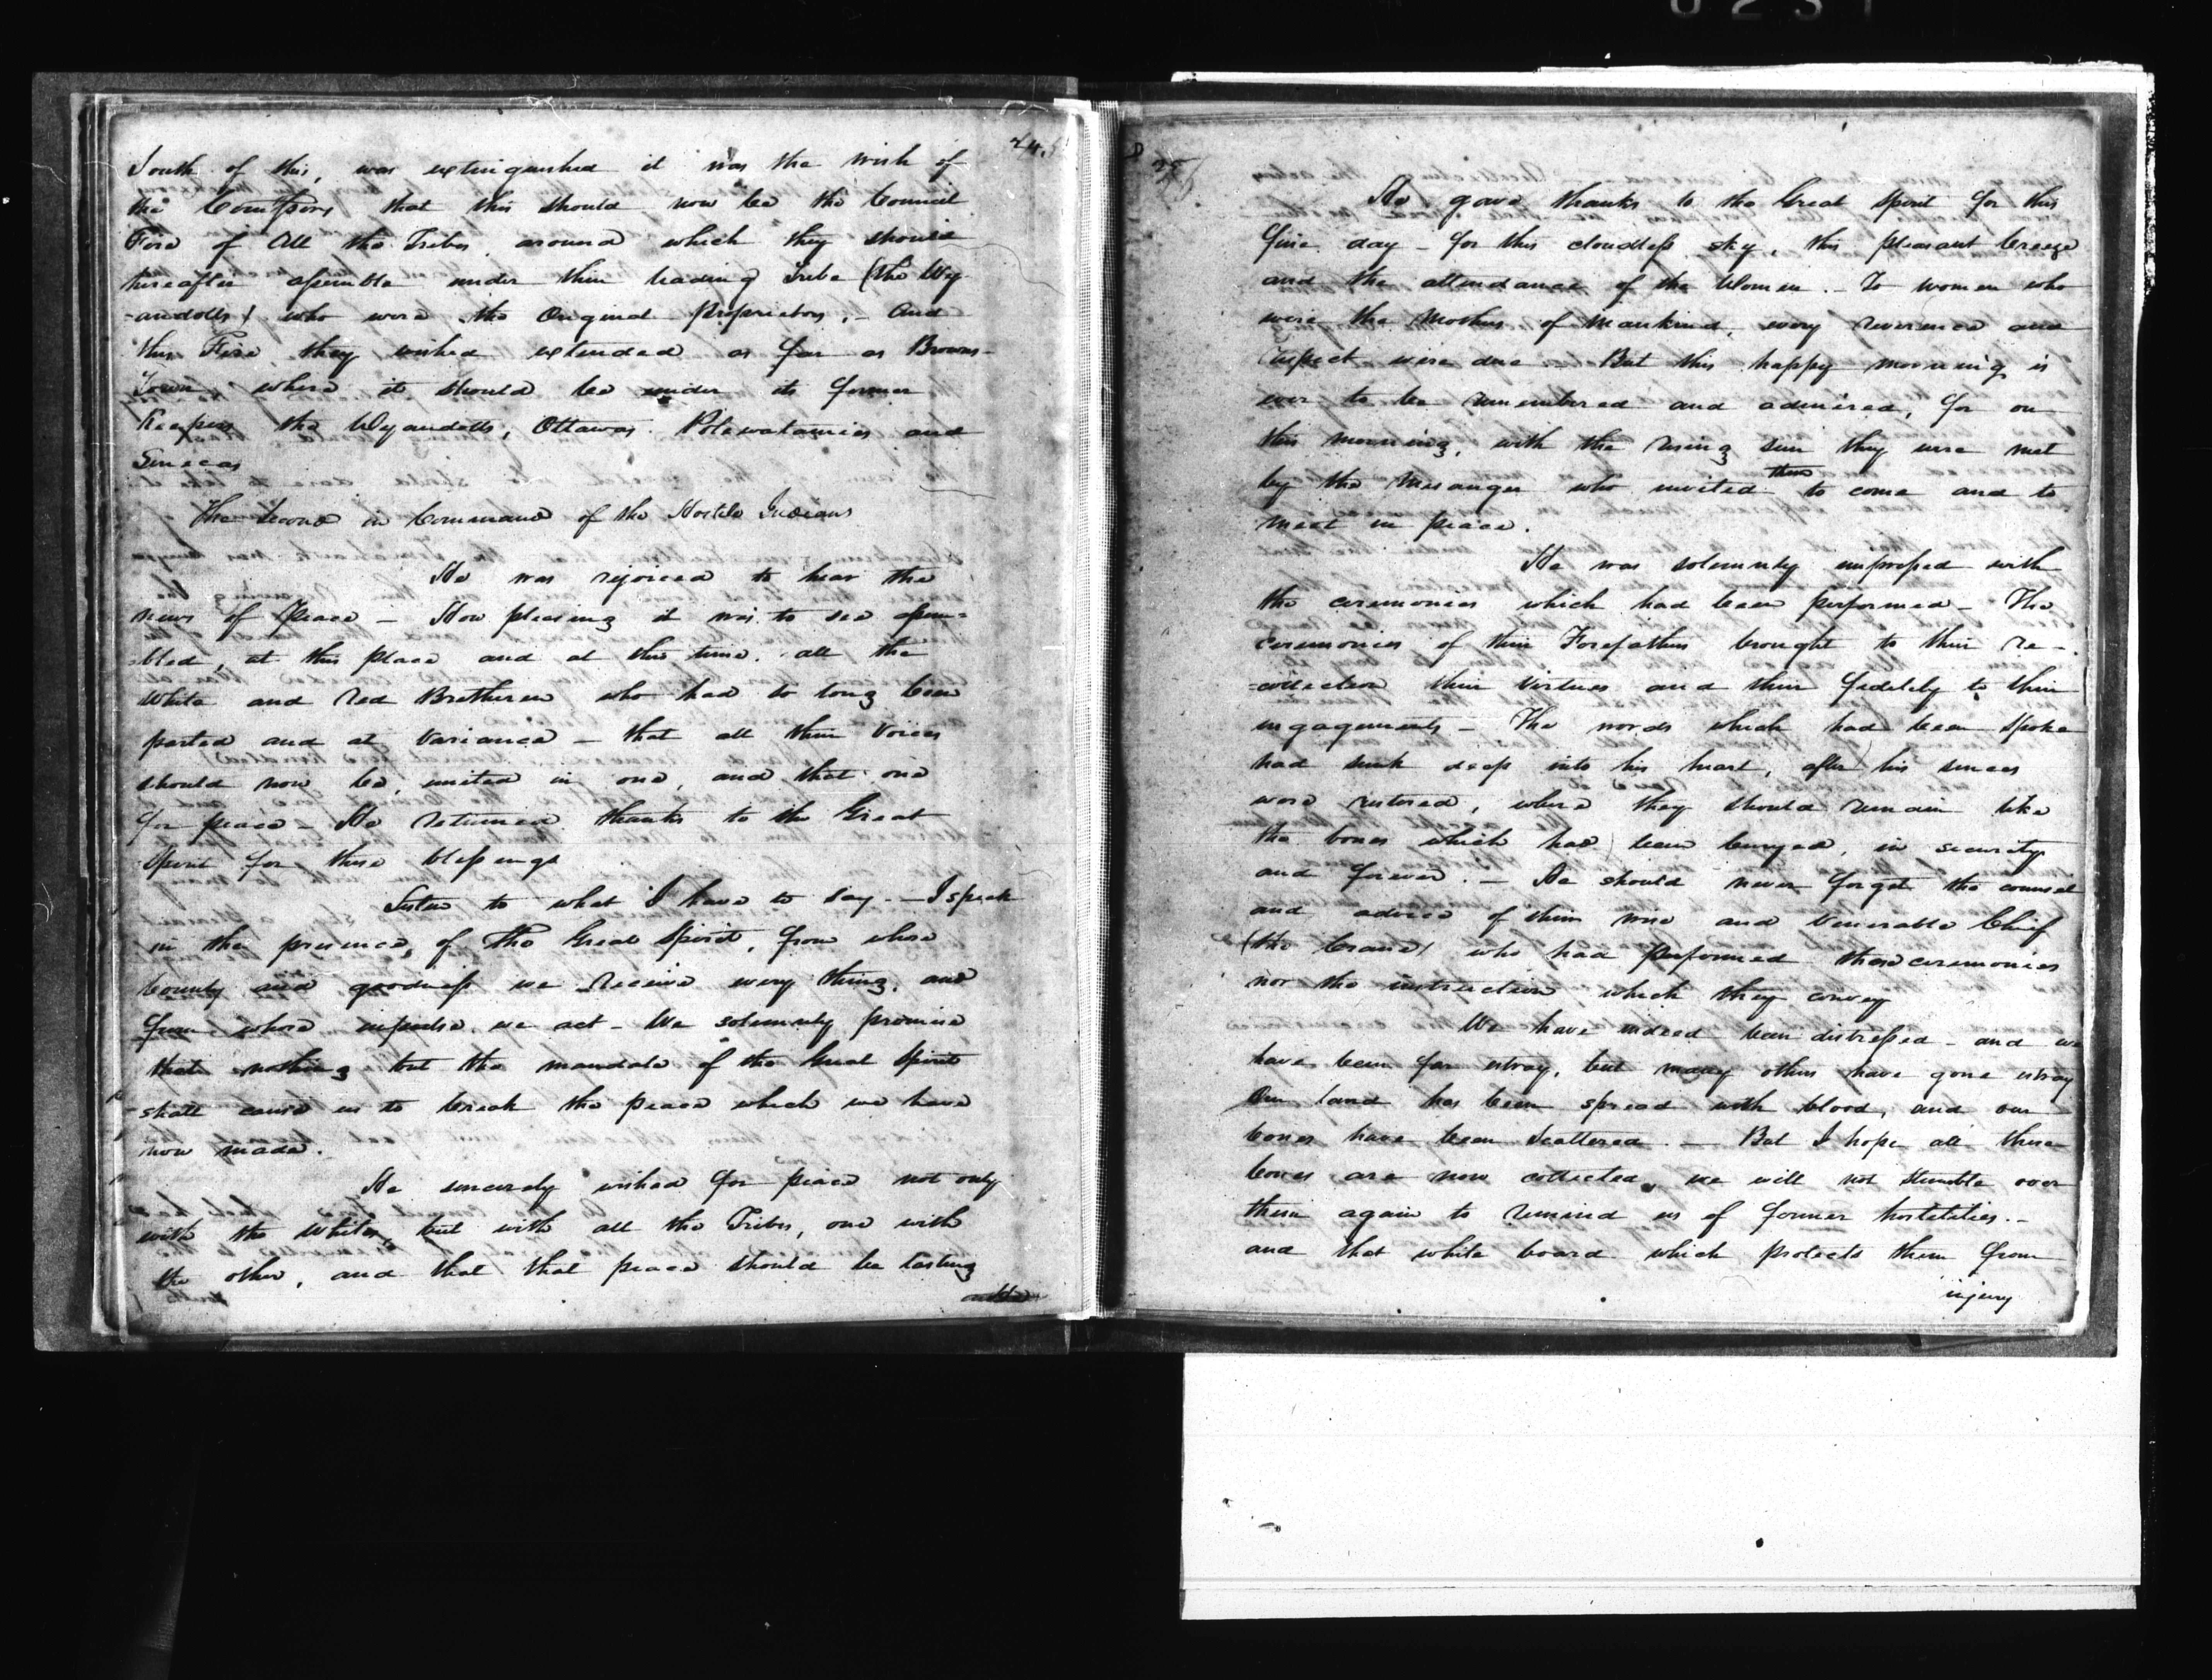 24.
South of this, was extinguished it was the wish of
the Comssrs that this should now be the Council
Fire of All the Tribes around which they should
hereafter assemble under their leading Tribe (the Wy-
-andotts) who were the Original Proprietors. - And
this Fire they wished extended as far as Browns-
Town where it should be under its former
Keepers the Wyandotts, Ottawas Potawatamies and
Senecas
The second in Command of the Hostile Indians
He was rejoiced to hear the
news of Peace - How pleasing it was to see assem-
-bled, at this place and at this time, all the
White and Red Bretheren who had so long been
parted and at Variance - that all their Voices
should now be, united in one, and that one
for peace - He returned thanks to the Great
Spirit for these blessings
Listen to what I have to say. - I speak
in the presence, of The Great Spirit, from whose
bounty and goodness we receive every thing, and
from whose impulse we act - We solemnly promise
that nothing but the mandate of the Great Spirit
shall cause us to break the peace which we have
now made.
He sincerely wished for peace not only
with the Whites, but with all the Tribes, one with
the other, and that that peace should be lasting
25
He gave thanks to the Great Spirit for this
fine day - for this cloudless sky, this pleasant breeze
and the attendance of the Women. - To women who
were the Mothers of Mankind, every reverence and
respect were due - But this happy morning is
ever to be remembered and admired, for on
this morning, with the rising sun they were met
by the Messanger who invited them to come and to
meet in peace.
He was solemnly impressed with
the ceremonies which had been performed - The
ceremonies of their Forefathers brought to their re-
-collection their Virtues and their fidelity to their
engagements - The words which had been spoke
had sunk deep into his heart, after his senses
were restored, where they should remain like
the bones which had been buryed, in security
and forever. - He should never forget the counsel
and advice of their wise and Venerable Chief
(the Crane) who had performed these ceremonies
nor the instruction which they convey
We have indeed been distressed - and we
have been far estray, but many others have gone estray
Our land has been spread with blood, and our
bones have been Scattered. - But I hope all these
bones are now collected, we will not stumble over
them again to remind us of former hostilities. -
and that white board which protects them from
injury